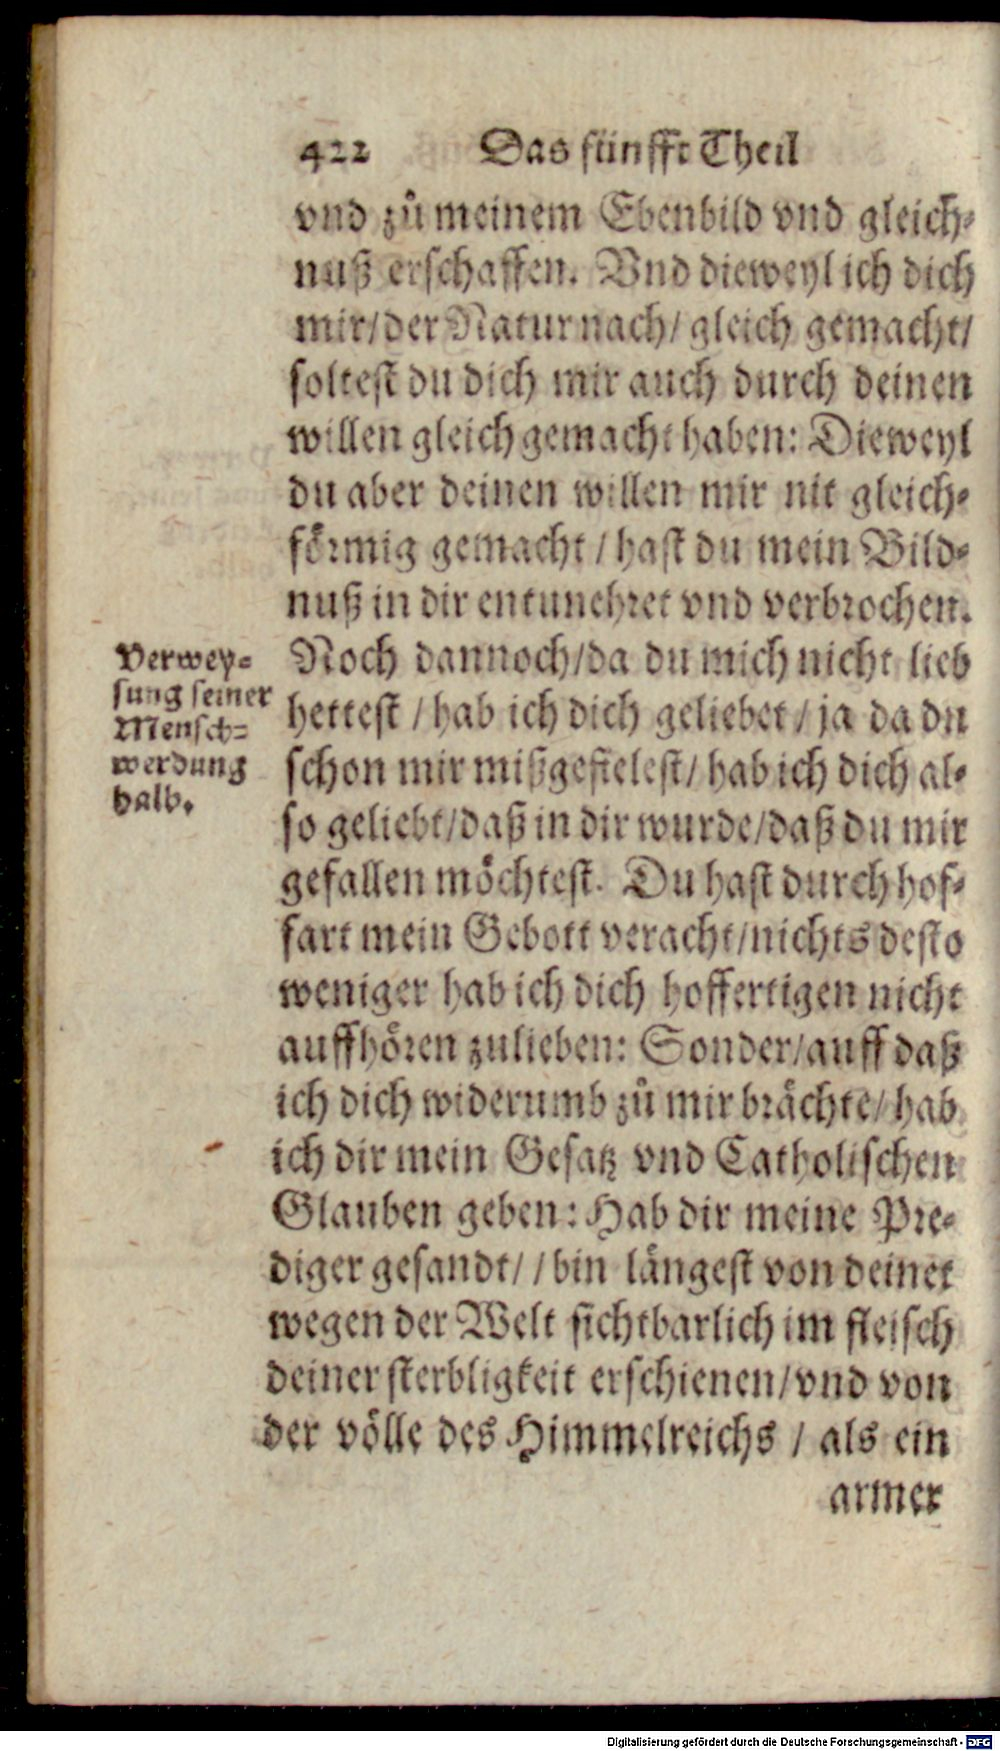 422 Das fünffte Theil
vnd zů meinem Ebenbild vnd gleich-
nuß erschaffen. Vnd dieweyl ich dich
mir/der Natur nach/ gleich gemacht/
soltest du dich mir auch durch deinen
willen gleich gemacht haben: Dieweyl
du aber deinen willen mir nit gleich-
förmig gemacht / hast du mein Bild-
nuß in dir entunehret vnd verbrochen.
Noch dannoch/da du mich nicht lieb
hettest / hab ich dich geliebet / ja da du
schon mir mißgefielest/ hab ich dich al-
so geliebt/daß in dir wurde/daß du mir
gefallen möchtest. Du hast durch hof-
fart mein Gebott veracht/nichts desto
weniger hab ich dich hoffertigen nicht
auffhören zulieben: Sonder/auff daß
ich dich widerumb zů mir brächte/ hab
ich dir mein Gesatz vnd Catholischen
Glauben geben: Hab dir meine Pre-
diger gesandt/ / bin längest von deinet
wegen der Welt sichtbarlich im fleisch
deiner sterbligkeit erschienen/vnd von
der völle des Himmelreichs / als ein
armer
Verwey-
sung seiner
Mensch-
werdung
halb.
Digitalisierung gefördert durch die Deutsche Forschungsgemeinschaft - DFG